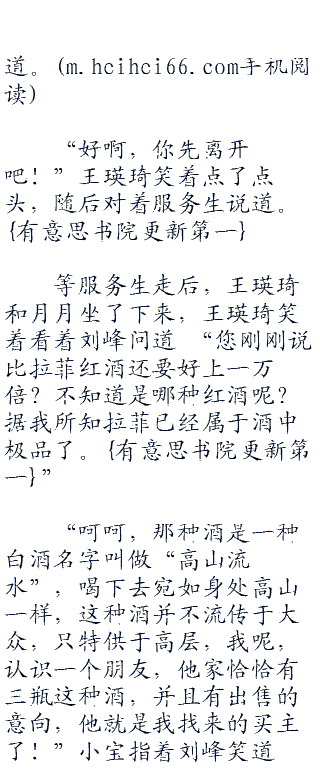 道。(m.hcihci66.com手机阅
读)
“好啊，你先离开
吧！”王瑛琦笑着点了点
头，随后对着服务生说道。
{有意思书院更新第一}
等服务生走后，王瑛琦
和月月坐了下来，王瑛琦笑
着看着刘峰问道 “您刚刚说
比拉菲红酒还要好上一万
倍？不知道是哪种红酒呢？
据我所知拉菲已经属于酒中
极品了。{有意思书院更新第
一}”
“呵呵，那种酒是一种
白酒名字叫做“高山流
水”，喝下去宛如身处高山
一样，这种酒并不流传于大
众，只特供于高层，我呢，
认识一个朋友，他家恰恰有
三瓶这种酒，并且有出售的
意向，他就是我找来的买主
了！”小宝指着刘峰笑道